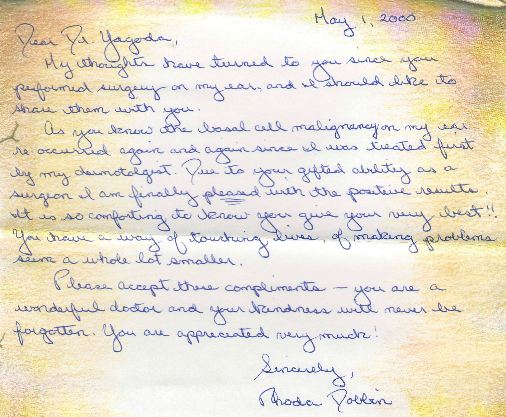 May 1, 2000
Dear Dr. Yagoda,
My thoughts have turned to you since you
performed surgery on my ear, and I should like to
share them with you.
As you know the basal cell malignancy on my ear
re-occurred again and again since I was treated first
by my dermotologist. Due to your gifted ability as a
surgeon I am finally pleased with the positive results.
It is so comforting to know you give your very best!!
You have a way of touching lives, of making problems
seem a whole lot smaller.
Please accept these compliments — you are a
wonderful doctor and your kindness will never be
forgotten. You are appreciated very much!
Sincerely,
Rhoda Doblin